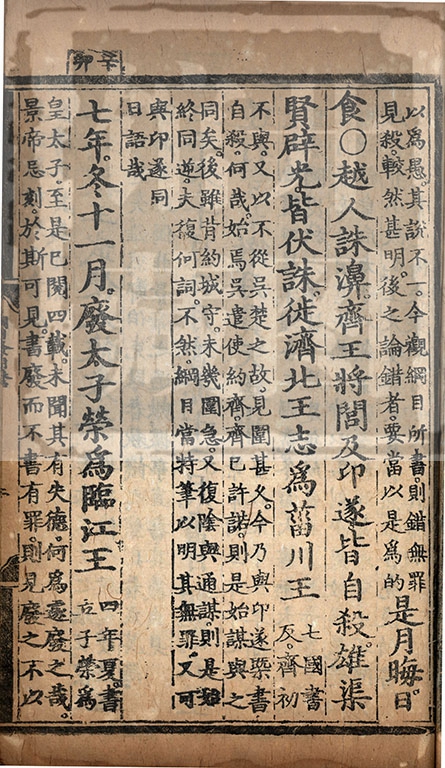 辛卯
以爲愚其說不一今觀綱目所書則錯無罪
見殺較然甚明後之論錯者要當以是爲的
是月晦日。
食○越人誅濞。齊王將閭及卬遂皆自殺。雄渠
賢辟光皆伏誅。徙濟北王志爲菑川王
七國書
反。齊初
不與。又以不從吳楚之故見圍甚久。今乃與卬遂槩書
自殺。何哉。始焉吳遣使約齊。齊已許諾。則是始謀與之
同矣。後雖背約城守。未幾圍急。又復陰與通謀。則是始
終同逆。夫復何詞。不然。綱目當特筆以明其無罪。又可
與卬遂同
日語哉
七年。冬十一月。廢太子榮爲臨江王
四年夏書
立子榮爲
皇太子。至是已閱四載。未聞其有失德。何爲遽廢之哉。
景帝忌刻。於斯可見。書廢而不書有罪。則見廢之不以